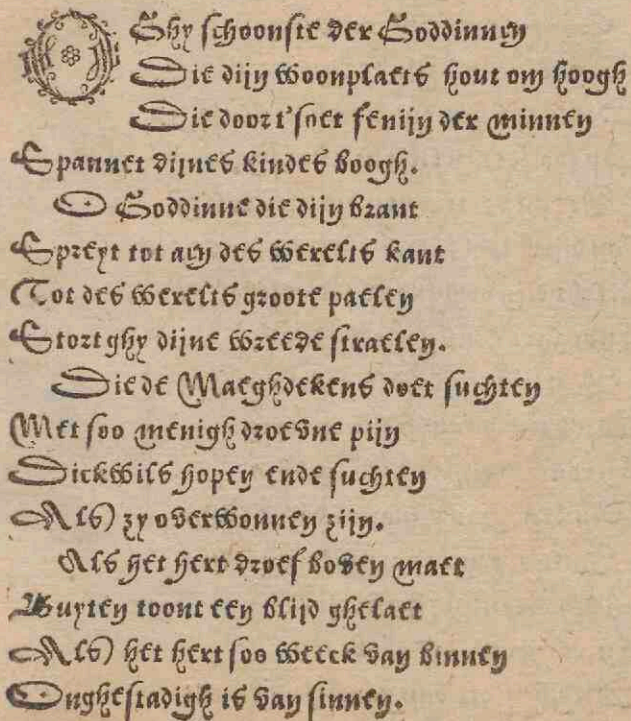 O Ghy schoonste der Goddinnen
Die dijn woonplaets hout om hoogh
Die door t'soet fenijn der minnen
Spannet dijnes kindes boogh.
O Goddinne die dijn brant
Spreyt tot aen des werelts kant
Tot des werelts groote paelen
Stort ghy dijne wreede straelen.
Die de Maeghdekens doet suchten
Met soo menigh droevne pijn
Dickwils hopen ende suchten
Als zy overwonnen zijn.
Als het hert droef boven maet
Buyten toont een blijd ghelaet
Als het hert soo weeck van binnen
Onghestadigh is van sinnen.